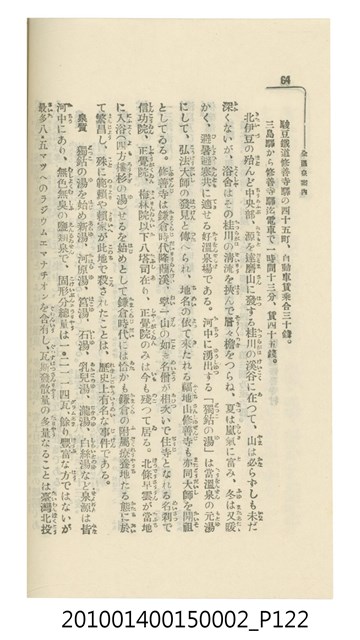 64
全國溫泉案內
駿豆鐵道修善寺驛の西十五町、自動車賃乘合三十錢。
三島驛から修善寺驛迄電車で一時間十三分、賃四十五錢。
北伊豆の殆んど中央部、源を達磨山に發する桂川の溪谷に在つて、山は必らずしも未だ
深くないが、浴舍はその桂川の清流を挾んで層々檐をつらね、夏は嵐氣に富み、冬は又暖
かく、避暑避寒共に適せる好溫泉場である。河中に湧出する「獨鈷の湯」は當溫泉の元湯
にして、弘法大師の發見と傳へられ、地名の依て來れる福地山修善寺も亦同大師を開祖
としてゐる。修善寺は鎌倉時代隆蘭溪、寧一山の如き名僧が相次いで住寺となれる名刹で
信功院、正覺院、梅林院以下八塔司在り、正覺院のみは今も殘つて居る。北條早雲が當地
に入浴(四方檜杉の湯)せるを始めとして鎌倉時代には恰かも鎌倉の附屬療養地たる態に於
て繁昌し、殊に範賴や賴家が此地で殺されたことは、歷史上有名な事件である。
泉質 獨鈷の湯を始め新湯、河原湯、筥湯、石湯、乳兒湯、瀧湯、白絲湯など泉源は皆
河中にあり、無色無臭の鹽類泉で、固形分總量は一・二一一四瓦、餘り豐富な方ではないが
最多八・五マツヘのラジウムエマナチオンを含有し、瓦斯發散量の多量なることは臺灣北投
201001400150002_P122